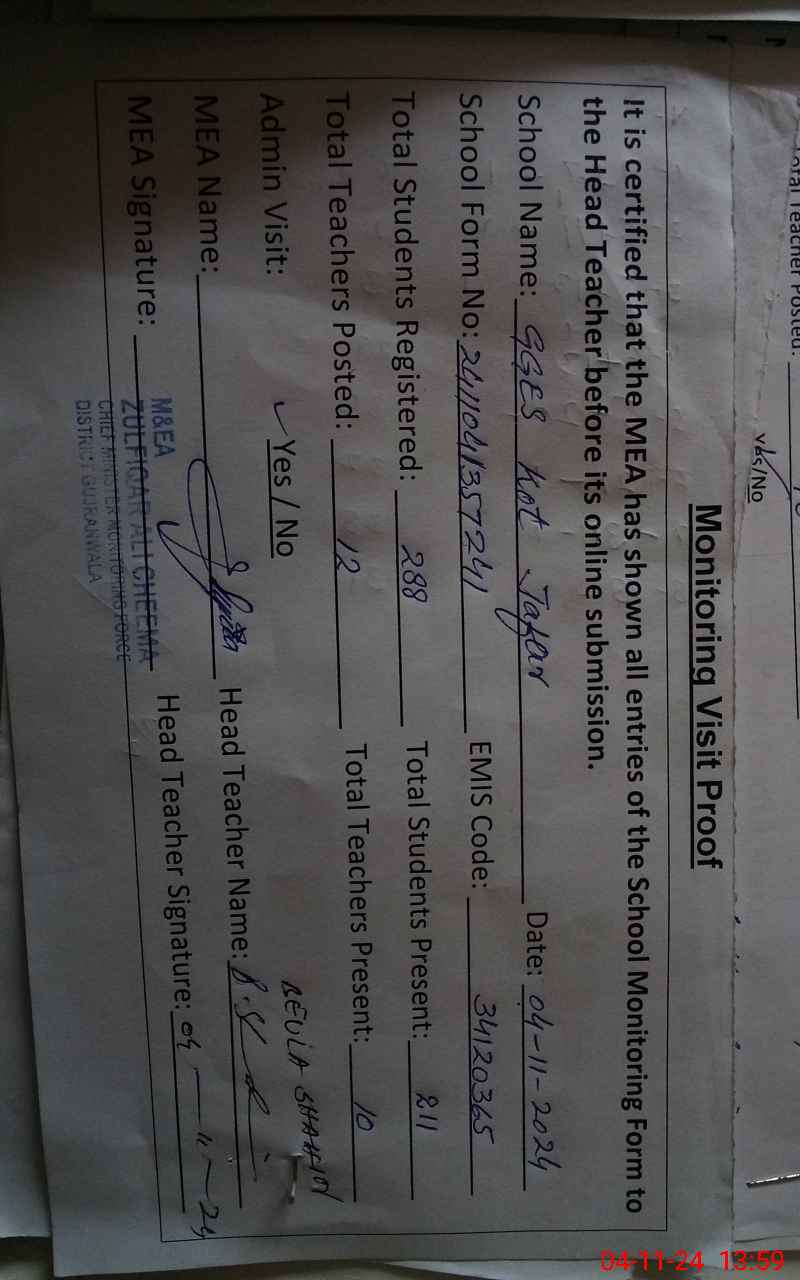 Total Teacher Posted:
Yes/No
Monitoring Visit Proof
It is certified that the MEA has shown all entries of the School Monitoring Form to
the Head Teacher before its online submission.
School Name: GGES Kot Jafar Date: 04-11-2024
School Form No: 241104135724 1 EMIS Code: 34120365
Total Students Registered: 288 Total Students Present: 211
Total Teachers Posted: 12 Total Teachers Present: 10
Admin Visit: ✓ Yes / No BEULA SHAHIN
MEA Name: Head Teacher Name:
MEA Signature: Head Teacher Signature: 04-11-24
M&EA
ZULFIQAR ALI CHEEMA
CHIEF MINISTER MONITORING FORCE
DISTRICT GUJRANWALA
04-11-24 13:59